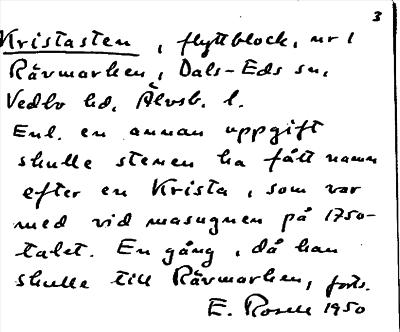 3
Kristasten, flyttblock, nr 1
Rävmarken, Dals-Eds sn,
Vedbo hd, Älvsb. l.
Enl. en annan uppgift
skulle stenen ha fått namn
efter en Krista, som var
med vid masugnen på 1750-
talet. En gång, då han
skulle till Rävmarken, forts.
E. Rosell 1950